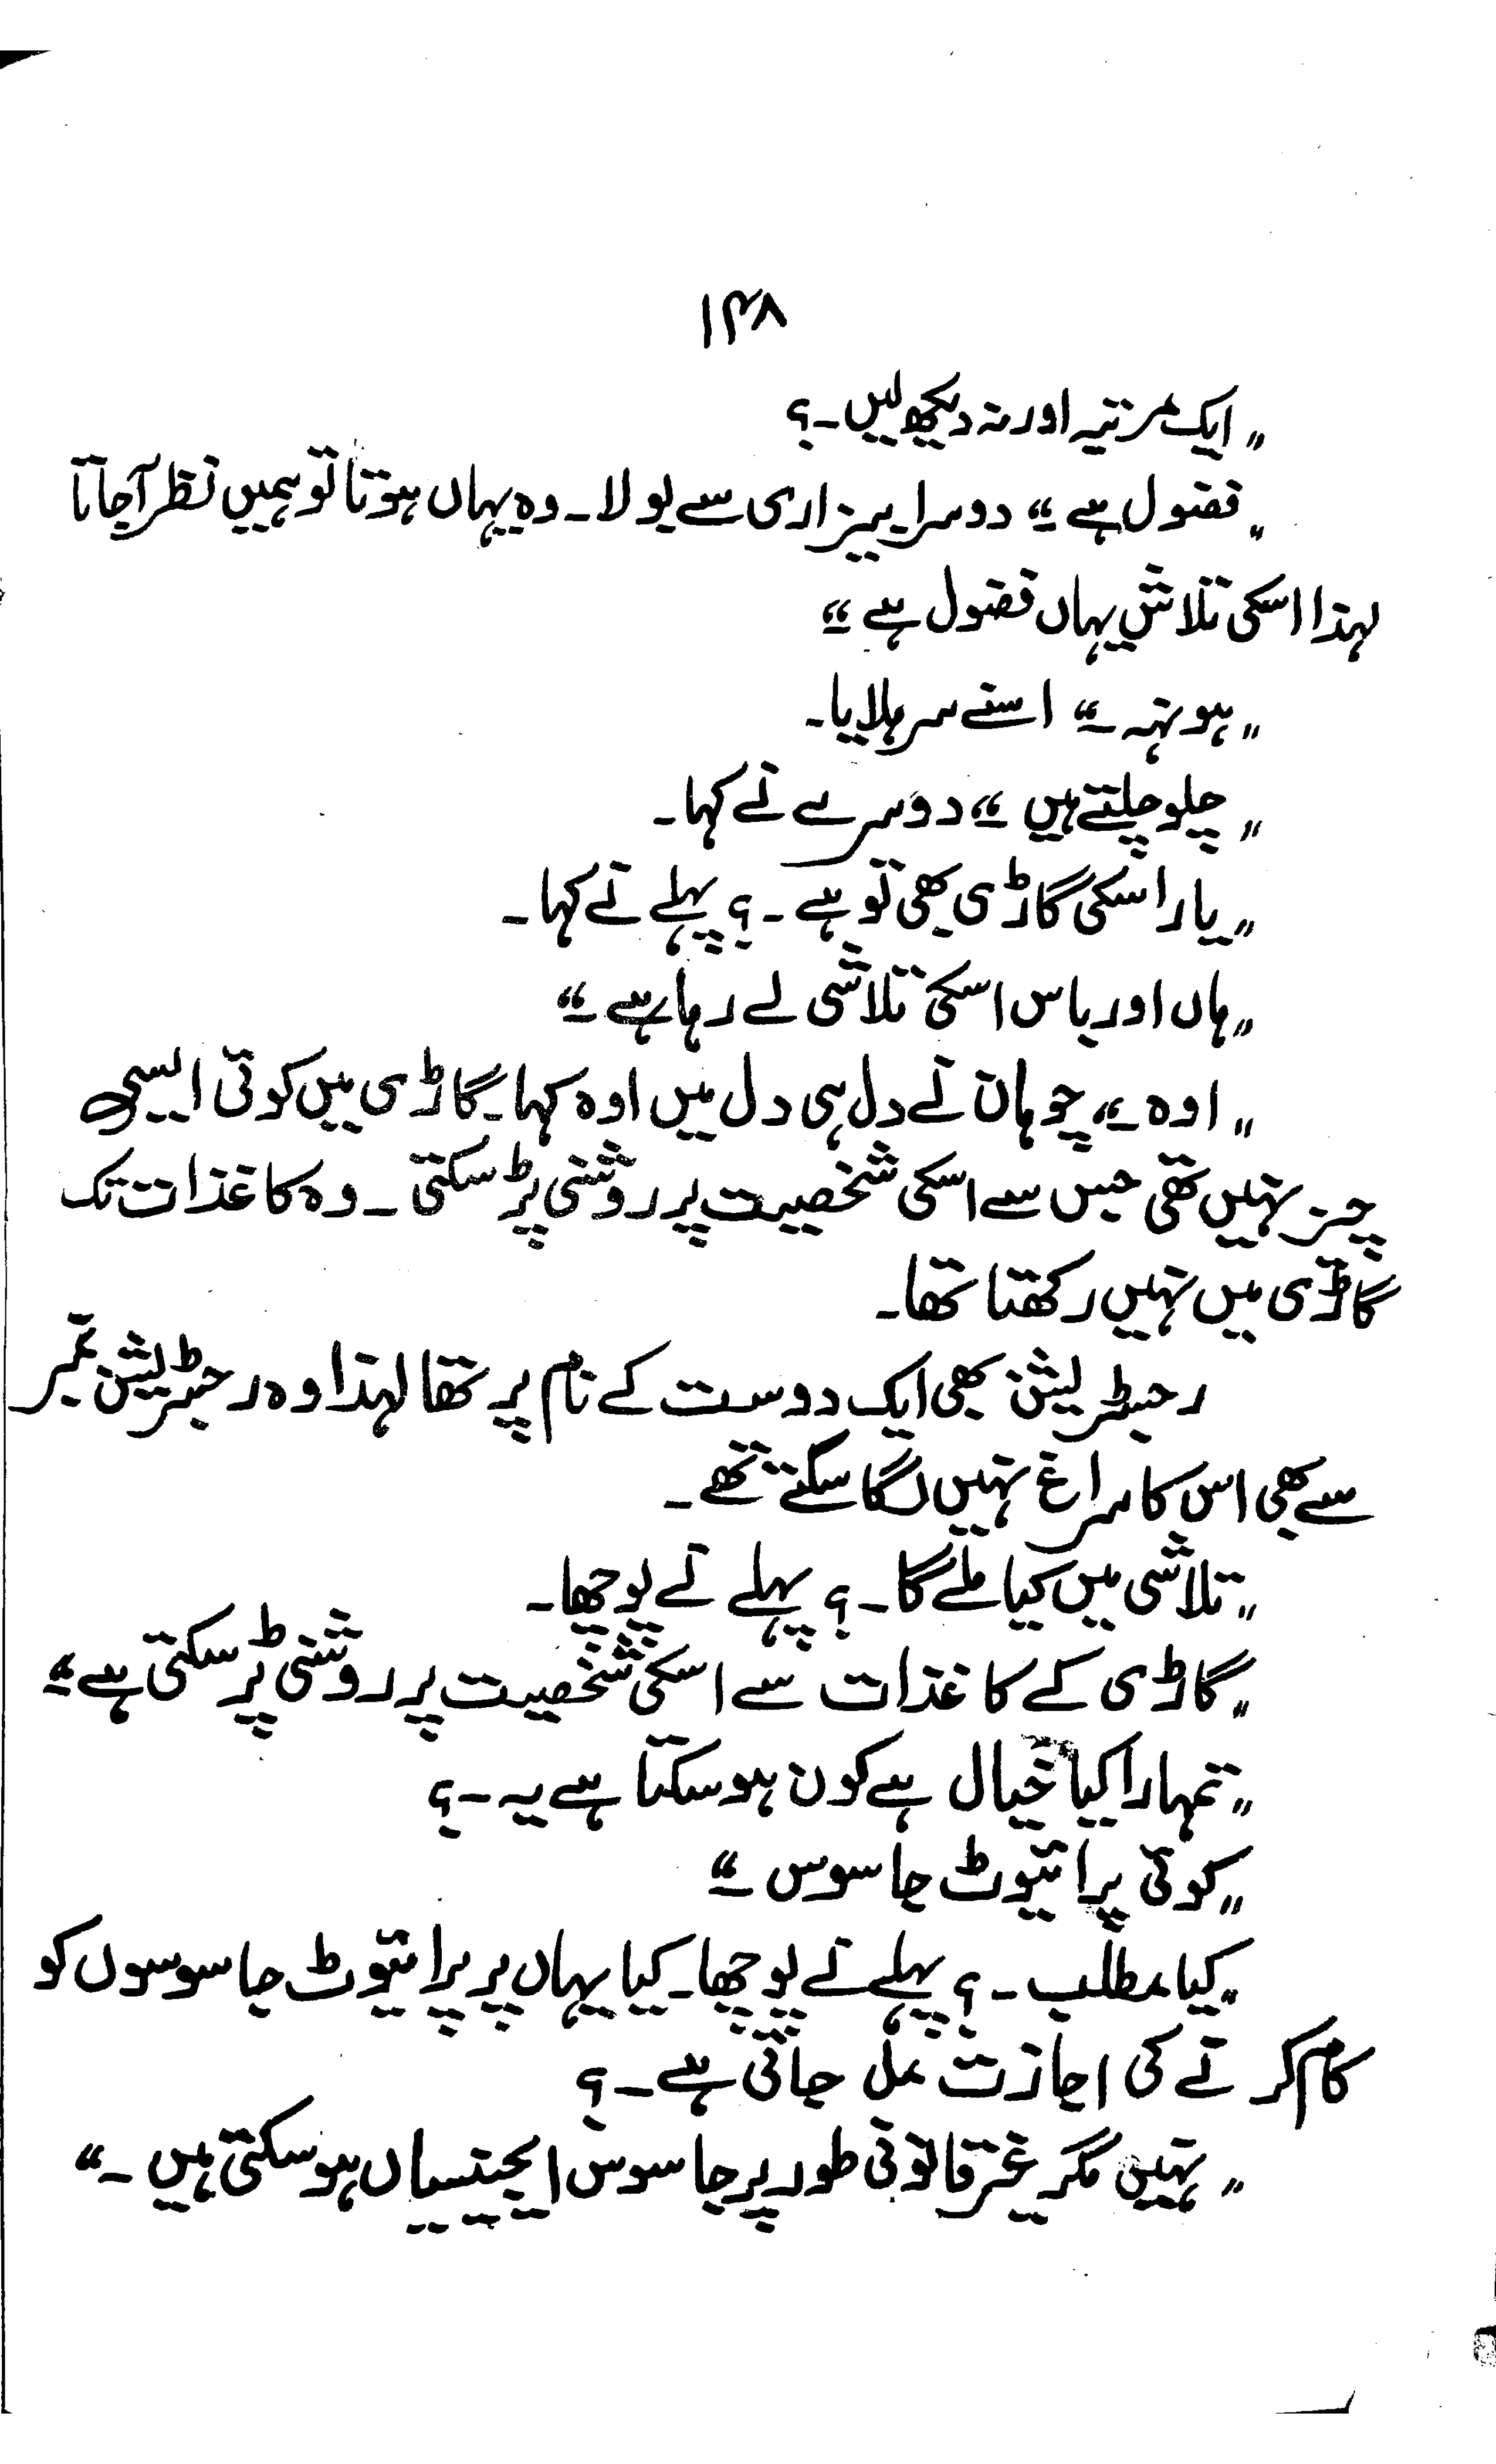 ۱۴۸
"ایک مرتبہ اور نہ دیکھ لیں۔؟
"فضول ہے" دوسرا بیزاری سے بولا۔ وہ یہاں ہوتا تو ہمیں نظر آجاتا
لہذا اسکی تلاش یہاں فضول ہے"
"ہونہہ۔" اسنے سر ہلایا۔
"چلو چلتے ہیں" دوسرے نے کہا۔
"یار اسکی گاڑی بھی تو ہے۔؟ پہلے نے کہا۔
"ہاں اور باس اسکی تلاشی لے رہا ہے"
"اوہ" چوہان نے دل ہی دل میں اوہ کہا۔ گاڑی میں کوئی ایسی
چیز نہیں تھی جس سے اسکی شخصیت پر روشنی پڑ سکتی۔ وہ کاغذات تک
گاڑی میں نہیں رکھتا تھا۔
رجسٹریشن بھی ایک دوست کے نام پر تھا لہذا وہ رجسٹریشن نمبر
سے بھی اس کا سراغ نہیں لگا سکتے تھے۔
"تلاشی میں کیا ملے گا۔؟ پہلے نے پوچھا۔
"گاڑی کے کاغذات سے اسکی شخصیت پر روشنی پڑ سکتی ہے"
"تمہارا کیا خیال ہے کون ہو سکتا ہے یہ۔؟
"کوئی پرائیوٹ جاسوس"
"کیا مطلب۔؟ پہلے نے پوچھا۔ کیا یہاں پر پرائیوٹ جاسوسوں کو
کام کرنے کی اجازت مل جاتی ہے۔؟
"نہیں مگر غیر قانونی طور پر جاسوس ایجینسیاں ہو سکتی ہیں۔"